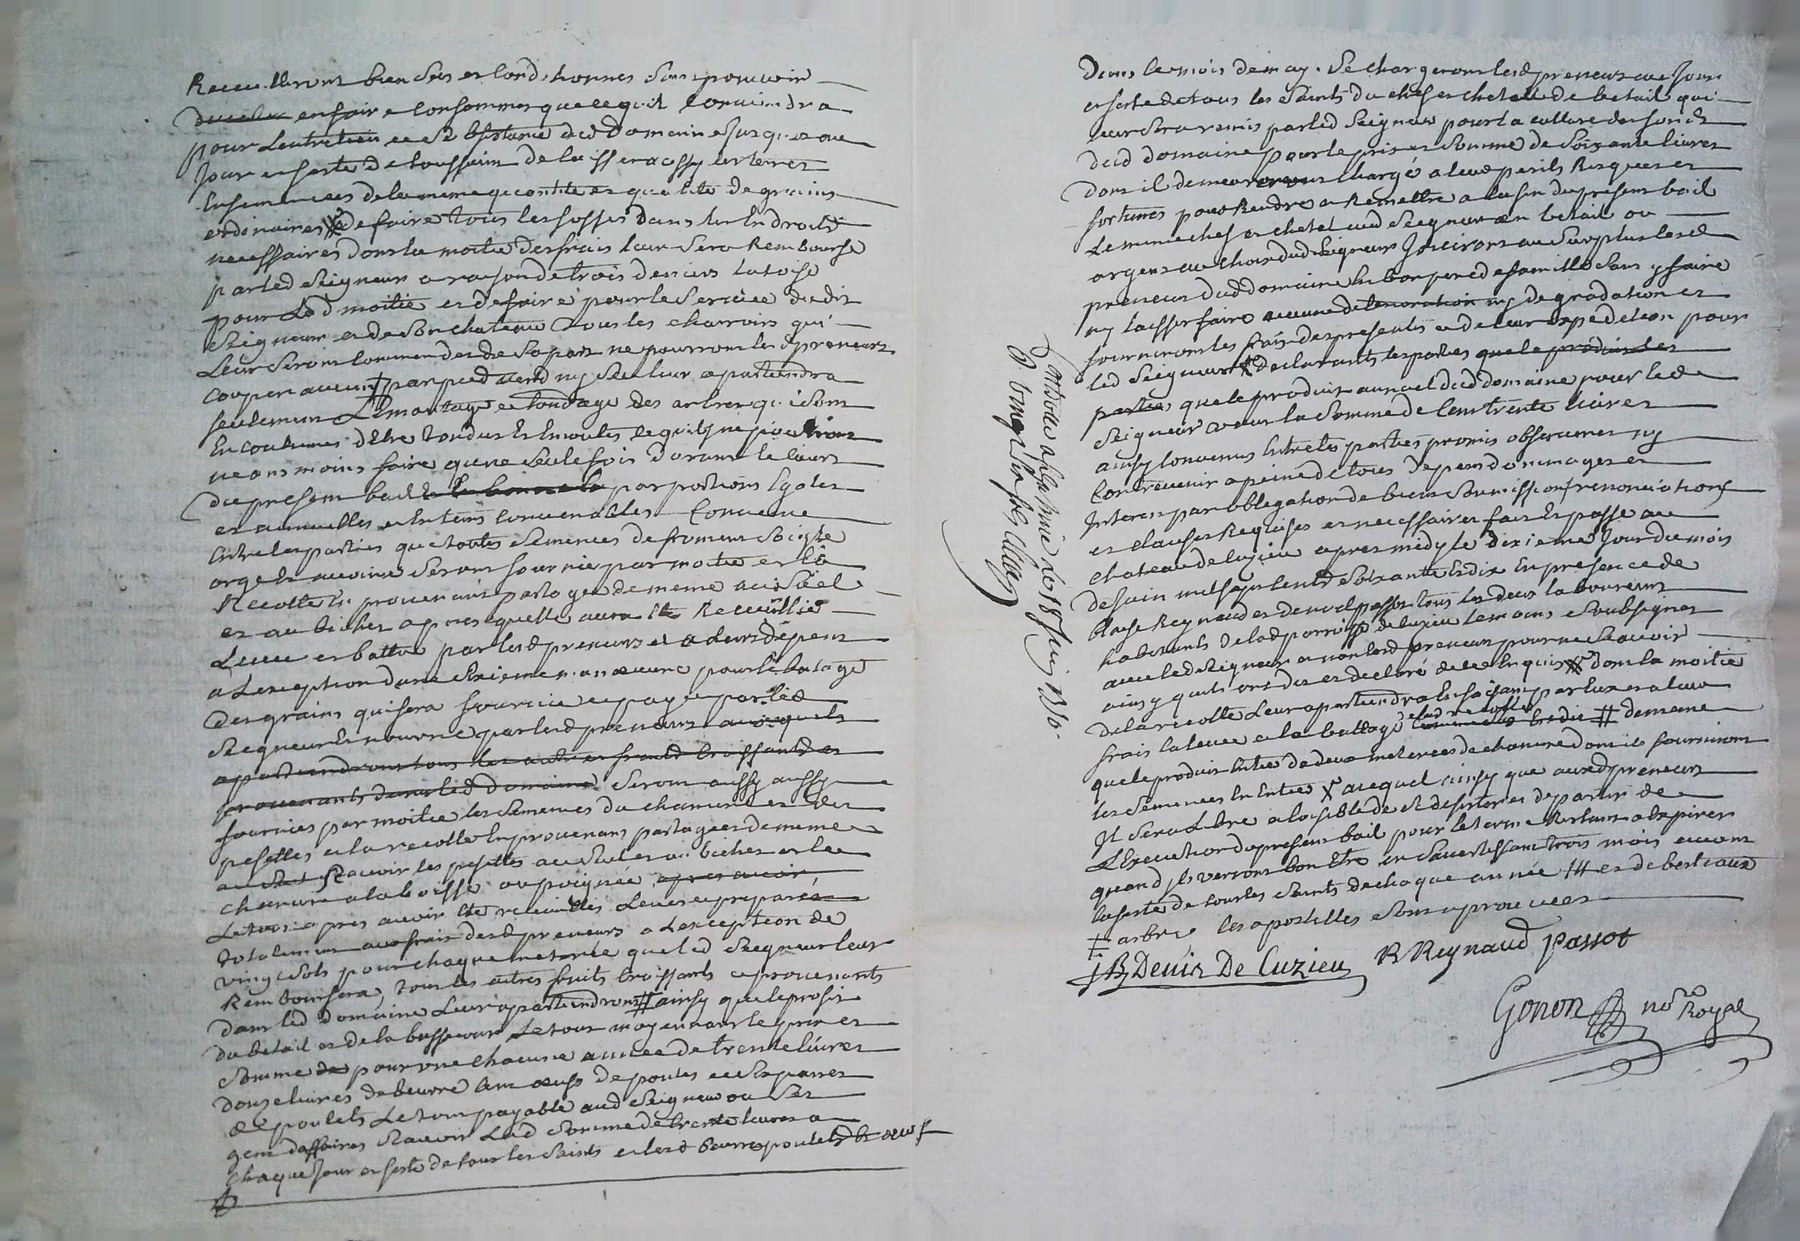 Recuilliront bien sees et conditionnés sans pouvoir
en faire consommer que ce quil conviendra
pour Lentretien et subsistance dud Domaine jusques au
jour et feste de toussaint de laisser aussy les terres
Ensemencées de la meme quantité et qualité de grains
ordinaires de faire tous les fossés dans les Endroits
necessaires dont la moitié des frais leur sera Remboursé
par led Seigneur a raison de trois deniers la toise
pour lad moitié et de faire pour le service dudit
Seigneur et de son chateau tous les charrois qui
Leur seront commendés de sa part ne pourront lesd preneurs
couper aucun par pied verd ny sec leur apartiendra
seulement Lemontage et tondage des arbres qui sont
En coutume d'Etre tondus et Emontés ce quils ne pourront
neans moins faire qune seule fois durant le cours
du present bail par portions Egales
et annuelles et en tems convenables Convenu
Entre les parties que toutes semences de froment soigle
orge et avoine seront fournie par moitié et la
Recolte En provenant partagée de meme au
et au bichet apres quelle aura Eté Recuillie
Levée et battue par lesd preneurs et a Leurs dépens
a Lexception dune sixieme manoeuvre pour le batage
des grains qui sera fournie et payée par led
Seigneur Et nourrie par lesd preneurs
seront aussy aussy
fournies par moitié les semences du chanvre et des
pesettes et la recolte En provenant partagée de meme
scavoir les pesettes au et au bichet et le
chanvre a la ou poignée
Le tout apres avoir Eté recuillies Levées et preparés
totalement aux frais desd preneurs a Lexception de
vingt sols pour chaque meterée que led Seigneur leur
Remboursera, tous les autres fruits croissants et provenants
dans led domaine Leur apartiendront ⧣ ainsy que le profit
du betail et de la bassecour Le tout moyennant le prix et
somme pour une chacune année de trente livres
douze livres de beurre Cent oeufs de poules et six paires
de poulets Le tout payable aud Seigneur ou ses
gens daffaires scavoir Lad somme de trente livres a
chaque jour et feste de tous les saints et lesd beurre poulets et oeufs
Dans le mois de may. Se chargeront lesd preneurs au jour
et feste de tous les Saints du chef et cheteil de betail qui
leur sera remis par led Seigneur pour la culture des fonds
dud domaine pour le prix et somme de soixante livres
dont il demeureront chargé a leurs perils Risques et
fortunes pour Rendre et Remettre a la fin du présent bail
Le meme chef et cheteil aud Seigneur en betail ou
argent au choix dud Seigneur Jouiront au surplus lesd
preneurs dud domaine En bon pere de famille sans y faire
ny laisser faire aucune ny degradation et
fourniront les frais des presentes et de leur expedition pour
led Seigneur declarants les parties
que le produit annuel dud domaine pour led
Seigneur vaut la somme de Cent trente livres
ainsy convenus Entre les parties promis observer ny
Contrevenir a peine de tous depens dommages et
Interets par obligation de biens soumissions renonciations
et clauses Requises et necessaires fait Et passé au
chateau de luzieu apres midy le dixieme jour du mois
de juin mil sept cents soixante Et dix En presence de
blaise Reynaud et de passot tous les deux laboureurs
habitants de lad parroisse de luzieu temoins soubsignés
avec led Seigneur et non lesd preneurs pour ne scavoir
ainsy quils ont dit et declaré de ce Enquis dont la moitié
de la recolte Leur apartiendra En faisant par Eux et a leurs
frais la levée et le battage ⧣ dememe
que le produit Entier de deux meterées de chanvre dont ils fourniront
les semences En Entier auquel ainsy que auxd preneurs
Il sera Libre a loisible de se desister et departir de
LExecution du present bail pour le terme Restant a Expirer
quand ils verront bon Etre en savertissant trois mois avant
la feste de tous les saints de chaque année et de bestiaux
arbre les apostilles sont aprouvées
JB Denis De Cuzieu R Reynaud passot
Gonon no.re Royal
le 18 juin 1770.